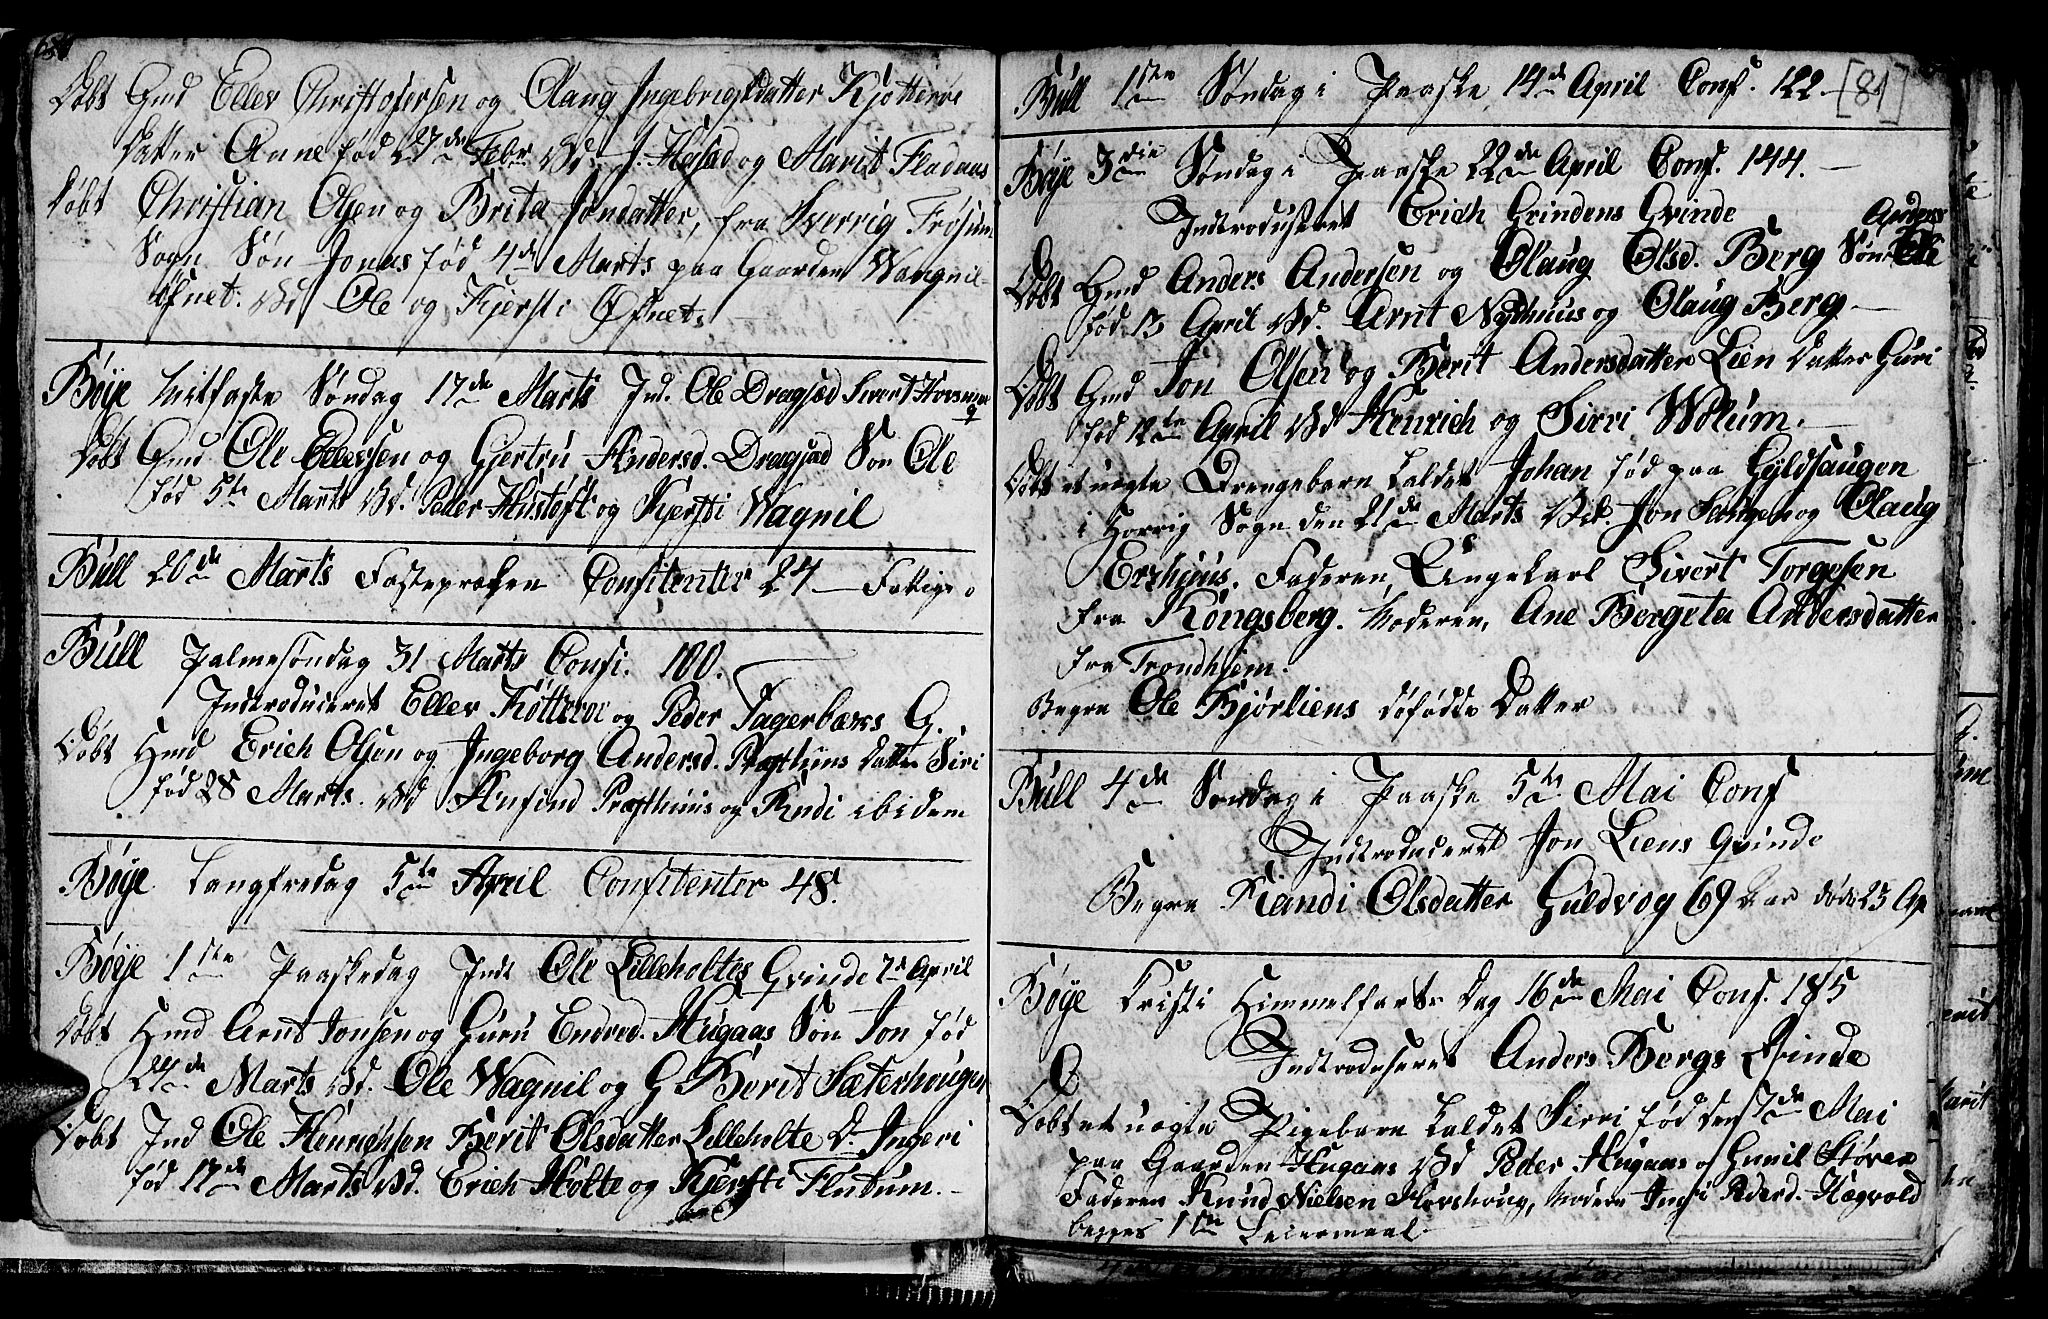 Døbt Gmd Ellev Christofersen og Olaug Ingebrigtsdatter Kjøtterøe
Datter Anne fød 27de Febr Vd. J. Hafsad og Marit Fladaas
Døbt Christian Olsen og Brita Jondatter, fra Sverrig Frøsum
Sogn Søn Jonas fød 4de Marts paa Gaarden Wangnil
Øfnet. Vd Ole og Kjersti Øfnet.
Bøye Mitfaste Søndag 17de Marts Ind. Ole Dragsæd Siver Hovsmoe
Døbt Gmd Ole Ellevsen og Gjertru Andersd. Dragsæd Søn Ole
fød 5te Marts Vd. Peder Histøft og Kjersti Wagnil
Bull 20de Marts Fasteprøken Confitenter 24 – Fattige
Bull Palmesøndag 31 Marts Confi. 100.
Introduceret Ellev Køtterøe og Peder Fagerbæks Q.
Døbt Hmd Erich Olsen og Ingeborg Andersd. Præsthuus Datter Siri
fød 28 Marts. Vd Anfind Præsthuus og Kndi ibidem
Bøye Langfredag 5te April Confitenter 48.
Bøye 1ste Paaskedag Indt Ole Lilleholtes Qvinde 7de April
Døbt Hmd Arnt Jonsen og Guru Endred. Hugaas Søn Jon fød
24de Marts Vd. Ole Wagnil og G Berit Sæterhougen
Døbt Ind Ole Henrichsen Berit Olsdatter Lilleholte D. Ingeri
fød 17de Marts Vd. Erich Holte og Kjersti Fludum.
Bull 1ste Søndag i Paaske 14de April Conf. 122. [81]
Bøye 3die Søndag i Paaske 22de April Conf. 144.
Introduseret Erich Grindens Qvinde
Anders
Døbt Gmd Anders Andersen og Olaug Olsd. Berg Søn Ole
fød 13 April Vd. Arnt Nythuus og Olaug Berg
Døbt Gmd Jon Olsen og Berit Andersdatter Lien Datter Guri
fød 12te April Vd Henrich og Sirri Wollum.
Døbt et uægte Drengebarn kaldet Johan fød paa Gyldsaugen
i Horrig Sogn den 21de Marts Vd. Jon Haugen og Olaug
Erzhuus. Faderen, Ungekarl Sivert Torgesen
fra Kongsberg. Moderen, Ane Bergeta Andersdatter
fra Trondhjem.
Begra Ole Bjørliens døfødde Datter
Bull 4de Søndag i Paaske 5te Mai Conf
Introduceret Jon Liens Qvinde
Begra Randi Olsdatter Guldvog 69 Aar død 23 Ap
Bøye Cristi Himmelfarts Dag 16de Mai Conf. 185
Introduseret Anders Bergs Qvinde
Døbt et uægte Pigebarn kaldet Sirri fød den 7de Mai
paa Gaarden Hugaas Vd Peder Hugaas og Gunil Støren
Faderen Knud Nielsen Hovshoug, Moderen Ingri Pderd. Hægvold
begges 1ste Leiermaal